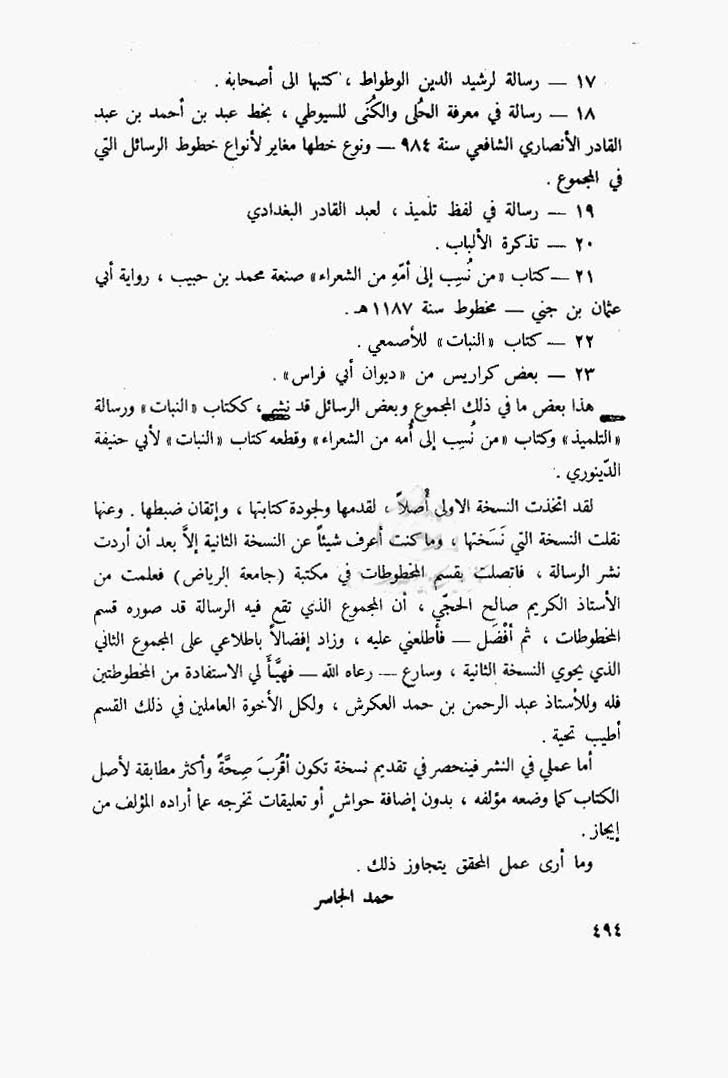 ١٧ — رسالة لرشيد الدين الوطواط ، كتبها الى أصحابه .
١٨ — رسالة في معرفة الحُلى والكُنَى للسيوطي ، بخط عبد بن أحمد بن عبد
القادر الأنصاري الشافعي سنة ٩٨٤ — ونوع خطها مغاير لأنواع خطوط الرسائل التي
في المجموع .
١٩ — رسالة في لفظ تلميذ ، لعبد القادر البغدادي
٢٠ — تذكرة الألباب .
٢١ — كتاب «من نُسِب إلى أمّهِ من الشعراء» صنعة محمد بن حبيب ، رواية أبي
عثمان بن جني — مخطوط سنة ١١٨٧ هـ .
٢٢ — كتاب «النبات» للأصمعي .
٢٣ — بعض كراريس من «ديوان أبي فراس» .
هذا بعض ما في ذلك المجموع وبعض الرسائل قد نشر ، ككتاب «النبات» ورسالة
«التلميذ» وكتاب «من نُسِب إلى أُمه من الشعراء» وقطعه كتاب «النبات» لأبي حنيفة
الدّينوري .
لقد اتخذت النسخة الاولى أُصلاً ، لقدمها ولجودة كتابتها ، وإتقان ضبطها . وعنها
نقلت النسخة التي نَسَختها ، وما كنت أعرف شيئاً عن النسخة الثانية إلاَّ بعد أن أردت
نشر الرسالة ، فاتصلت بقسم المخطوطات في مكتبة (جامعة الرياض) فعلمت من
الأستاذ الكريم صالح الحجّي ، أن المجموع الذي تقع فيه الرسالة قد صوره قسم
المخطوطات ، ثم أفْضَل — فأطلعني عليه ، وزاد إفضالاً باطلاعي على المجموع الثاني
الذي يحوي النسخة الثانية ، وسارع — رعاه الله — فهيَّأ لي الاستفادة من المخطوطتين
فله وللأستاذ عبد الرحمن بن حمد العكرش ، ولكل الأخوة العاملين في ذلك القسم
أطيب تحية .
أما عملي في النشر فينحصر في تقديم نسخة تكون أقْرَبَ صِحَّةً وأكثر مطابقة لأصل
الكتاب كما وضعه مؤلفه ، بدون إضافة حواشٍ أو تعليقات تخرجه عما أراده المؤلف من
إيجاز .
وما أرى عمل المحقق يتجاوز ذلك .
حمد الجاسر
٤٩٤